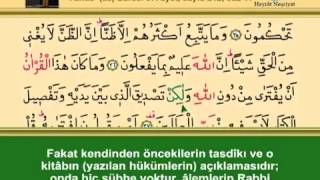 Hayrât Neşriyat
تَحْكُمُونَ ﴿٣٥﴾ وَمَا يَتَّبِعُ اَكْثَرُهُمْ اِلَّا ظَنًّا اِنَّ الظَّنَّ لَا يُغْنِي
مِنَ الْحَقِّ شَيْئًا اِنَّ اللّٰهَ عَلِيمٌ بِمَا يَفْعَلُونَ ﴿٣٦﴾ وَمَا كَانَ هٰذَا الْقُرْاٰنُ
اَنْ يُفْتَرٰى مِنْ دُونِ اللّٰهِ وَلٰكِنْ تَصْدِيقَ الَّذِي بَيْنَ يَدَيْهِ وَتَفْصِيلَ
Fakat kendinden öncekilerin tasdîkı ve o
kitâbın (yazılan hükümlerin) açıklamasıdır;
onda hiç şübhe yoktur, âlemlerin Rabbi